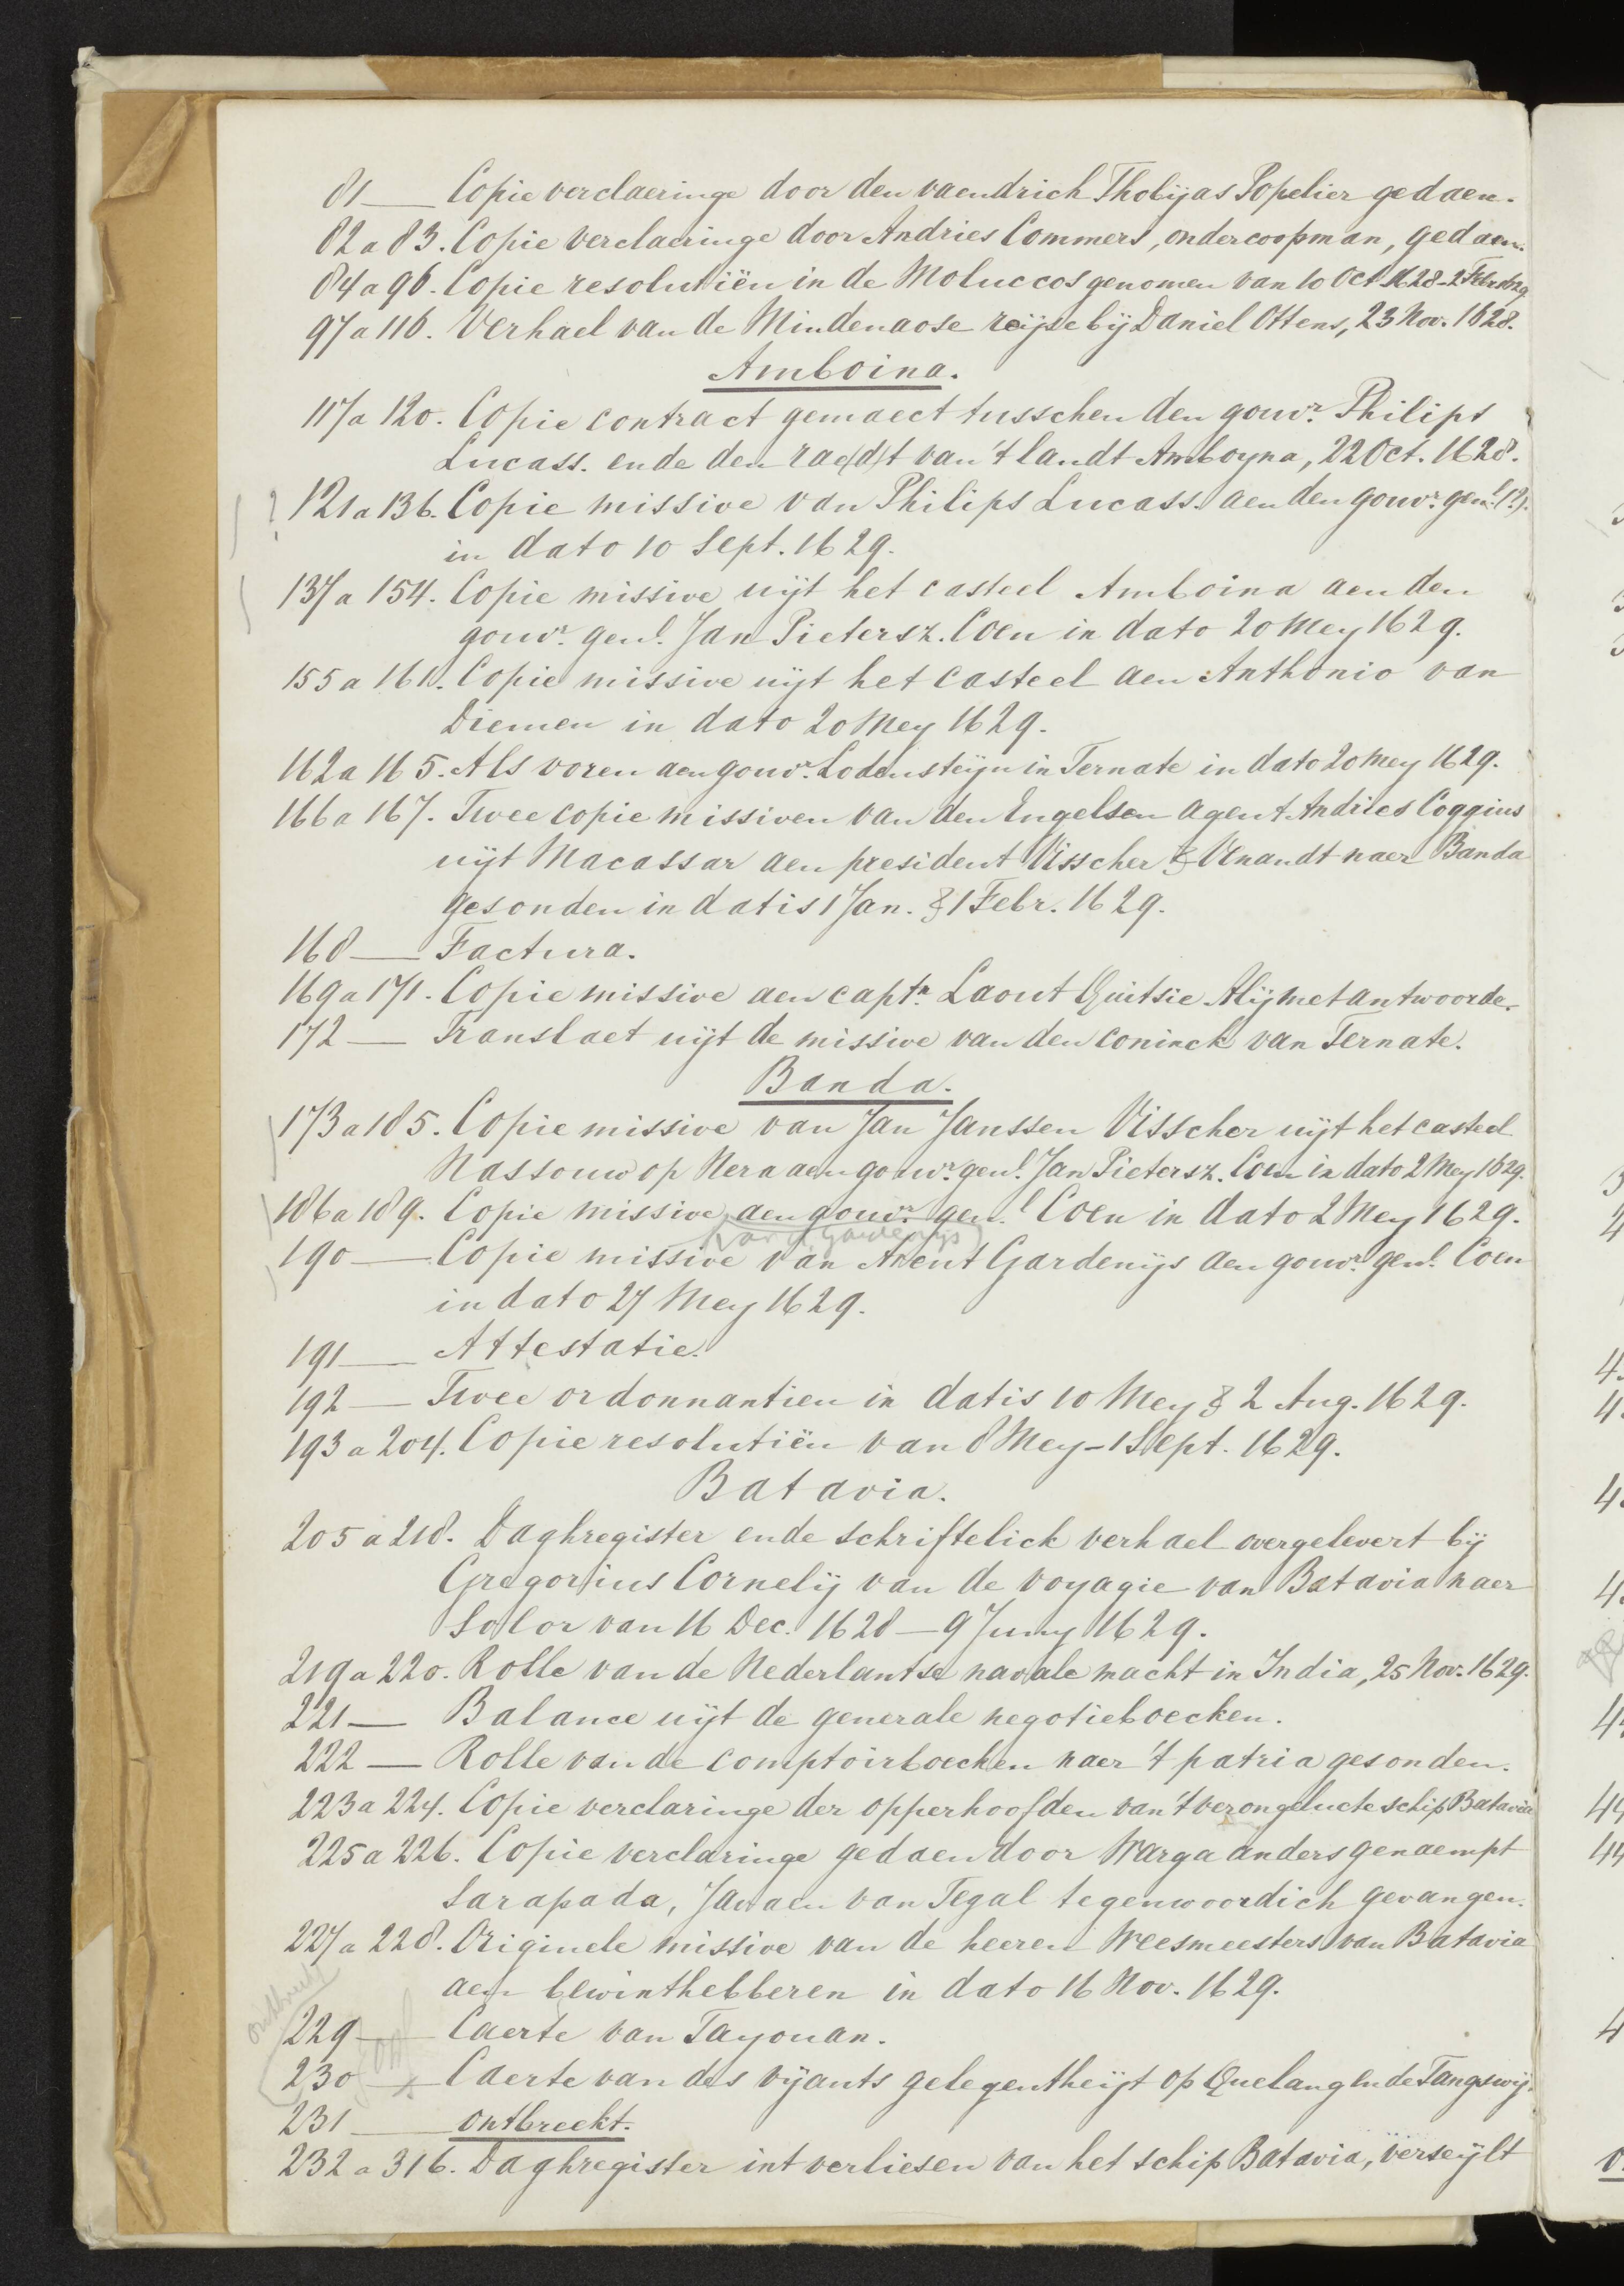 81 — Copie verclaeringe door den vaendrich Thobijas Popelier gedaen.
82 a 83. Copie verclaeringe door Andries Commers, ondercoopman, gedaen.
84 a 96. Copie resolutiën in de Moluccos genomen van 10 Oct. 1628-2 Febr. 1629
97 a 116. Verhael van de Mindenaose reijse bij Daniel Ottens, 23 Nov. 1628.
Amboina.
117 a 120. Copie contract gemaect tusschen den gouvr. Philips
Lucass. ende den rae(d)t van 't landt Amboyna, 22 Oct. 1628.
? 121 a 136. Copie missive van Philips Lucass. aen den gouvr. genl. (?).
in dato 10 Sept. 1629.
137 a 154. Copie missive uijt het casteel Amboina aen den
gouvr. genl. Jan Pietersz. Coen in dato 20 Mey 1629.
155 a 161. Copie missive uijt het casteel aen Anthonio van
Diemen in dato 20 Mey 1629.
162 a 165. Als voren aen gouvr. Lodensteijn in Ternate in dato 20 Mey 1629.
166 a 167. Twee copie missiven van den Engelsen agent Andries Coggins
uijt Macassar aen president Visscher & Vraundt naer Banda
gesonden in datis 1 Jan. & 1 Febr. 1629.
168 — Factura.
169 a 171. Copie missive aen captn. Laout Quitsie Alij met antwoorde.
172 — Translaet uijt de missive van den coninck van Ternate.
Banda.
173 a 185. Copie missive van Jan Janssen Visscher uijt het casteel
Nassouw op Nera aen gouvr. genl. Jan Pietersz. Coen in dato 2 Mey 1629.
186 a 189. Copie missive aen gouvr. genl. Coen in dato 2 Mey 1629.
(van A Gardenijs)
190 — Copie missive van Arent Gardenijs aen gouvr. genl. Coen
in dato 27 Mey 1629.
191 — Attestatie.
192 — Twee ordonnantien in datis 10 Mey & 2 Aug. 1629.
193 a 204. Copie resolutiën van 8 Mey-1 Sept. 1629.
Batavia.
205 a 218. Daghregister ende schriftelick verhael overgelevert bij
Gregorius Cornelij van de voyagie van Batavia naer
Solor van 16 Dec. 1628 — 9 Juny 1629.
219 a 220. Rolle van de Nederlantse navale macht in India, 25 Nov. 1629.
221 — Balance uijt de generale negotieboecken.
222 — Rolle van de comptoirboecken naer 't patria gesonden.
223 a 224. Copie verclaringe der opperhoofden van 't verongelucte schip Batavia
225 a 226. Copie verclaringe gedaen door Warga anders genaempt
Sarapada, Javaen van Tegal tegenwoordich gevangen.
227 a 228. Originele missive van de heeren Weesmeesters van Batavia
aen bewinthebberen in dato 16 Nov. 1629.
229 — Caerte van Tayouan.
230 — Caerte van des vijants gelegentheijt op Quelang ende Tangswij.
231 — ontbreekt.
232 a 316. Daghregister int verliesen van het schip Batavia, verseijlt